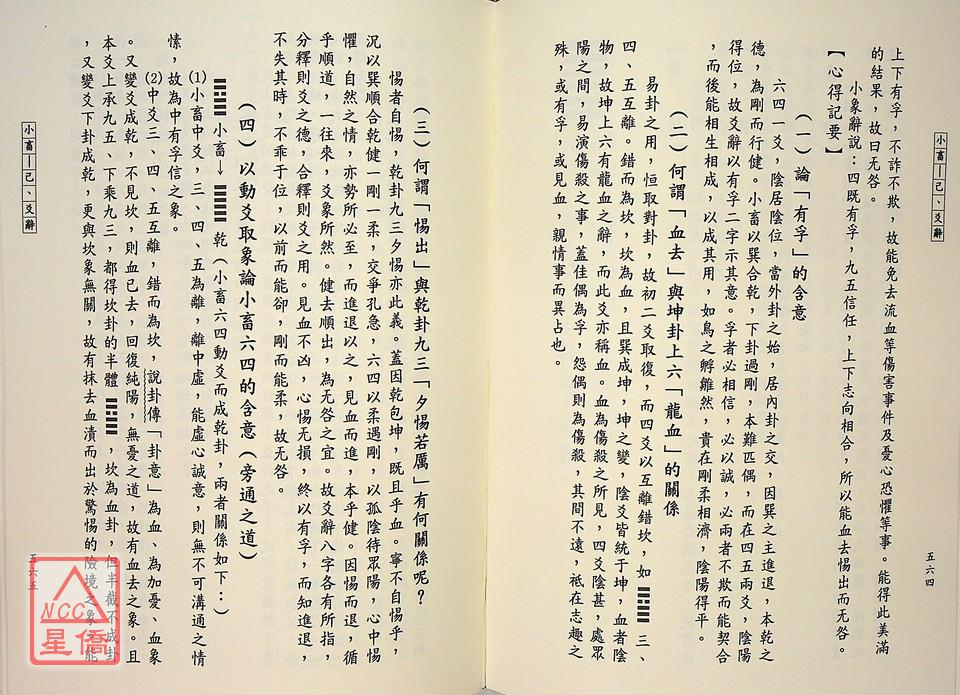 小畜—己、爻辭
上下有孚，不詐不欺，故能免去流血等傷害事件及憂心恐懼等事。能得此美滿
的結果，故曰无咎。
小象辭說：四既有孚，九五信任，上下志向相合，所以能血去惕出而无咎。
【心得記要】
（一）論「有孚」的含意
六四一爻，陰居陰位，當外卦之始，居內卦之交，因巽之主進退，本乾之
德，為剛而行健。小畜以巽合乾，下卦過剛，本難匹偶，而在四五兩爻，陰陽
得位，故爻辭以有孚二字示其意。孚者必相信，必以誠，必兩者不欺而能契合
，而後能相生相成，以成其用，如鳥之孵雛然，貴在剛柔相濟，陰陽得平。
（二）何謂「血去」與坤卦上六「龍血」的關係
易卦之用，恒取對卦，故初二爻取復，而四爻以互離錯坎，如䷈三、
四、五互離。錯而為坎，坎為血，且巽成坤，坤之變，陰爻皆統于坤，血者陰
物，故坤上六有龍血之辭，而此爻亦稱血。血為傷殺之所見，四爻陰甚，處眾
陽之間，易演傷殺之事，蓋佳偶為孚，怨偶則為傷殺，其間不遠，祇在志趣之
殊，或有孚，或見血，親情事而異占也。
五六四
（三）何謂「惕出」與乾卦九三「夕惕若厲」有何關係呢？
惕者自惕，乾卦九三夕惕亦此義。蓋因乾包坤，既且乎血。寧不自惕乎，
況以巽順合乾健一剛一柔，交爭孔急，六四以柔遇剛，以孤陰待眾陽，心中惕
懼，自然之情，亦勢所必至，而進退以之，見血而進，本乎健。因惕而退，循
乎順道，一往一來，爻象所然。健去順出，為无咎之宜。故爻辭八字各有所指，
分釋則爻之德，合釋則爻之用。見血不凶，心惕无損，終以有孚，而知進退，
不失其時，不乖于位，以前而能卻，剛而能柔，故无咎。
（四）以動爻取象論小畜六四的含意（旁通之道）
䷈小畜→䷀乾（小畜六四動爻而成乾卦，兩者關係如下：）
(1)小畜中爻，三、四、五為離，離中虛，能虛心誠意，則無不可溝通之情
愫，故為中有孚信之象。
(2)中爻三、四、五互離，錯而為坎，說卦傳「卦意」為血、為加憂、血象
。又變爻成乾，不見坎，則血已去，回復純陽，無憂之道，故有血去之象。且
本爻上承九五、下乘九三，都得坎卦的半體䷈，坎為血卦，但半截不成卦
，又變爻下卦成乾，更與坎象無關，故有抹去血漬而出於驚惕的險境之象，能
小畜—己、爻辭
五六五
NCC
星僑